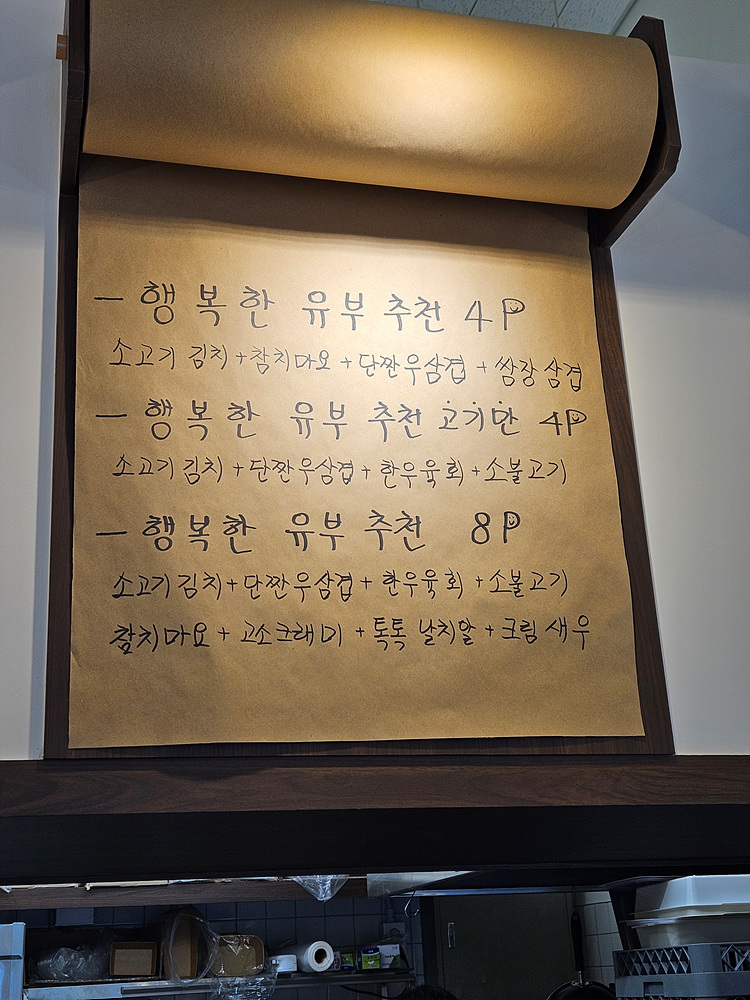 - 행복한 유부 추천 4P
소고기 김치+참치마요+단짠우삼겹+쌈장삼겹
- 행복한 유부 추천 고기만 4P
소고기김치+단짠우삼겹+한우육회+소불고기
- 행복한 유부 추천 8P
소고기김치+단짠우삼겹+한우육회+소불고기
참치마요+고소크래미+톡톡 날치알+크림새우